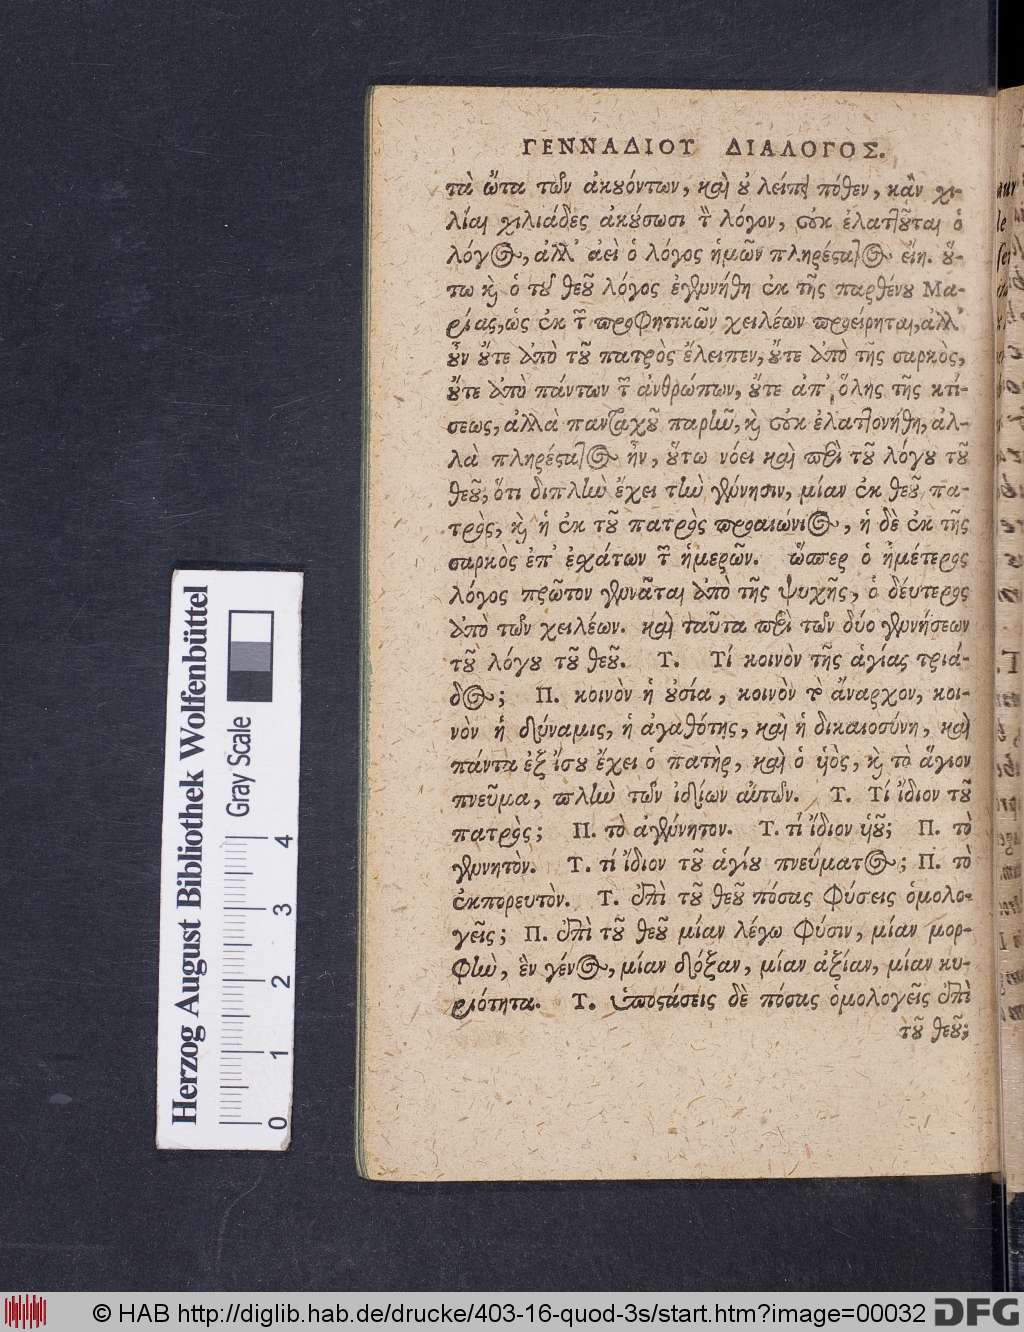 ΓΕΝΝΑΔΙΟΥ ΔΙΑΛΟΓΟΣ.
τὰ ὦτα τῶν ἀκουόντων, καὶ οὐ λείπει πόθεν, κἂν χι-
λίαι χιλιάδες ἀκούσωσι τὸν λόγον, οὐκ ἐλαττοῦται ὁ
λόγος, ἀλλ' ἀεὶ ὁ λόγος ἡμῶν πληρέστατος εἴη. οὕ-
τω καὶ ὁ τοῦ θεοῦ λόγος ἐγεννήθη ἐκ τῆς παρθένου Μα-
ρίας, ὡς ἐκ τῶν προφητικῶν χειλέων προείρηται, ἀλλ'
οὖν οὔτε ἀπὸ τοῦ πατρὸς ἔλειπεν, οὔτε ἀπὸ τῆς σαρκὸς,
οὔτε ἀπὸ πάντων τῶν ἀνθρώπων, οὔτε ἀπ' ὅλης τῆς κτί-
σεως, ἀλλὰ πανταχοῦ παρῆν, καὶ οὐκ ἐλαττονήθη, ἀλ-
λὰ πληρέστατος ἦν, οὕτω νόει καὶ περὶ τοῦ λόγου τοῦ
θεοῦ, ὅτι διπλὴν ἔχει τὴν γέννησιν, μίαν ἐκ θεοῦ πα-
τρὸς, καὶ ἡ ἐκ τοῦ πατρὸς προαιώνιος, ἡ δὲ ἐκ τῆς
σαρκὸς ἐπ' ἐσχάτων τῶν ἡμερῶν. ὥσπερ ὁ ἡμέτερος
λόγος πρῶτον γεννᾶται ἀπὸ τῆς ψυχῆς, ὁ δεύτερος
ἀπὸ τῶν χειλέων. καὶ ταῦτα περὶ τῶν δύο γεννήσεων
τοῦ λόγου τοῦ θεοῦ. Τ. Τί κοινὸν τῆς ἁγίας τριά-
δος; Π. κοινὸν ἡ οὐσία, κοινὸν τὸ ἄναρχον, κοι-
νὸν ἡ δύναμις, ἡ ἀγαθότης, καὶ ἡ δικαιοσύνη, καὶ
πάντα ἐξ ἴσου ἔχει ὁ πατὴρ, καὶ ὁ υἱὸς, καὶ τὸ ἅγιον
πνεῦμα, πλὴν τῶν ἰδίων αὐτῶν. Τ. Τί ἴδιον τοῦ
πατρὸς; Π. τὸ ἀγέννητον. Τ. τί ἴδιον υἱοῦ; Π. τὸ
γεννητὸν. Τ. τί ἴδιον τοῦ ἁγίου πνεύματος; Π. τὸ
ἐκπορευτὸν. Τ. ἐπὶ τοῦ θεοῦ πόσας φύσεις ὁμολο-
γεῖς; Π. ἐπὶ τοῦ θεοῦ μίαν λέγω φύσιν, μίαν μορ-
φὴν, ἓν γένος, μίαν δόξαν, μίαν ἀξίαν, μίαν κυ-
ριότητα. Τ. ὑποστάσεις δὲ πόσας ὁμολογεῖς ἐπὶ
τοῦ θεοῦ;
Herzog August Bibliothek Wolfenbüttel
Gray Scale
0 1 2 3 4
© HAB http://diglib.hab.de/drucke/403-16-quod-3s/start.htm?image=00032 DFG